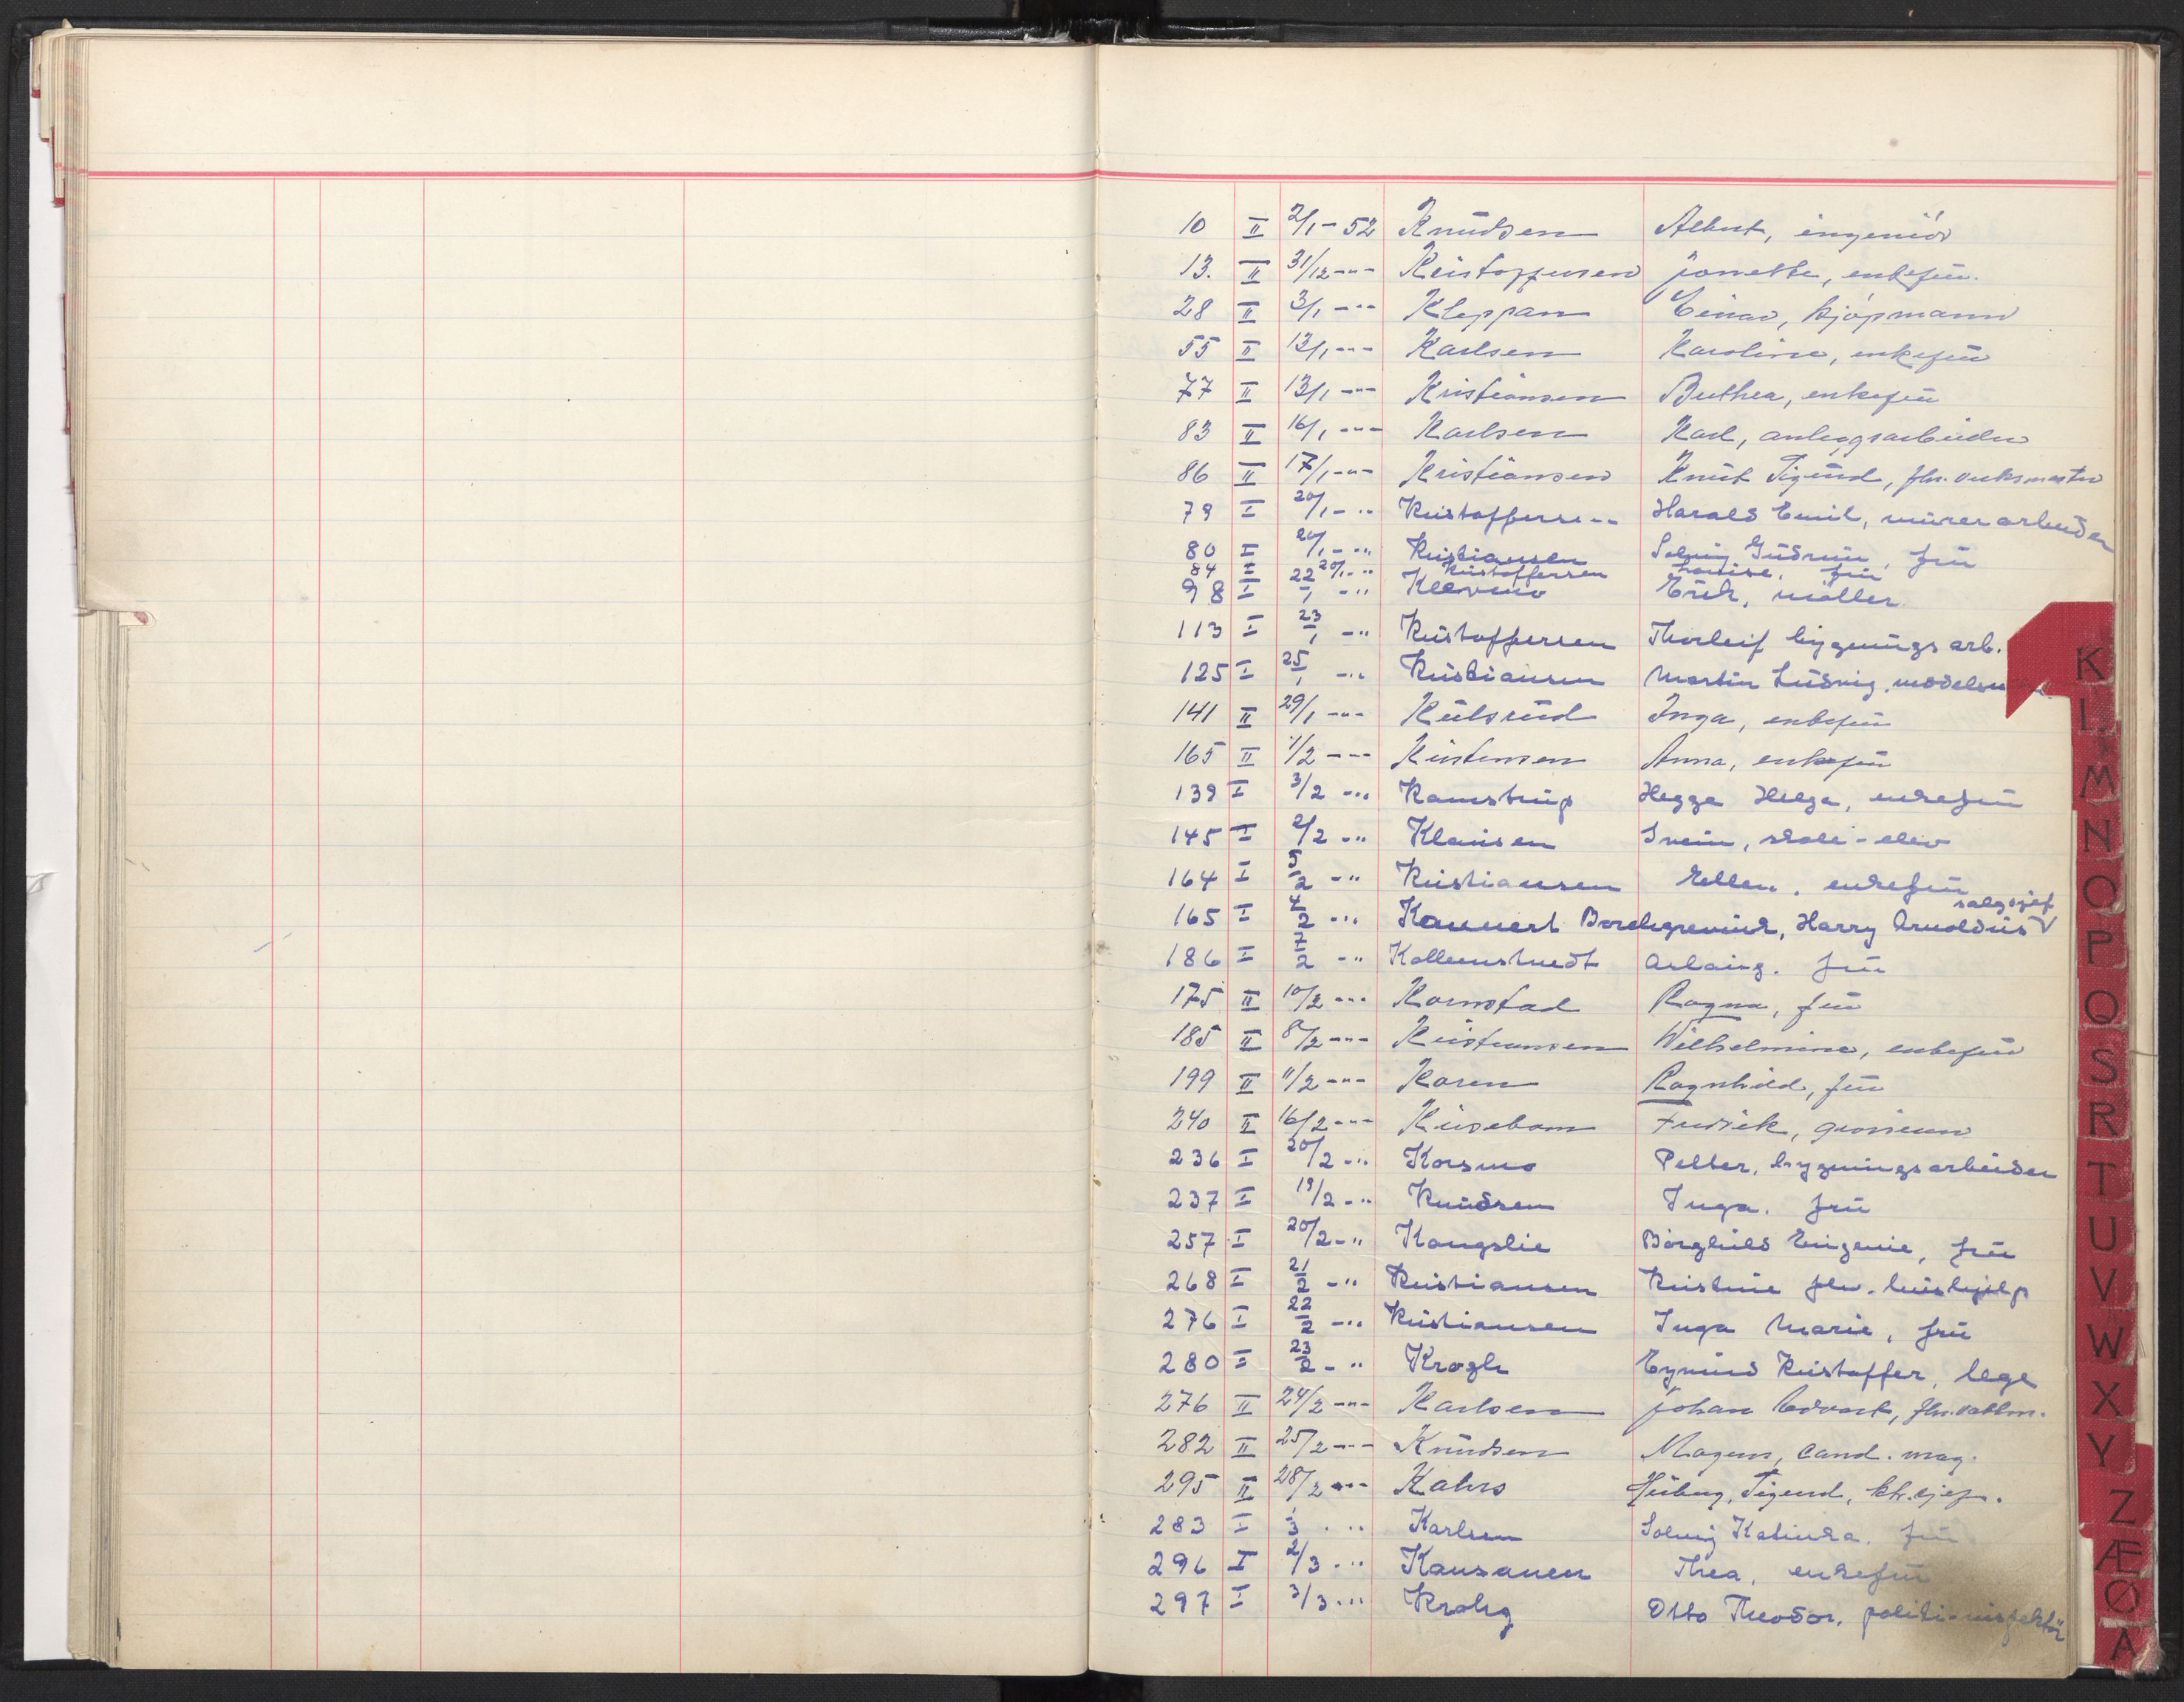 10 II 2/1-52 Knudsen Albert, ingeniör
13. II 31/12-"- Kristoffersen Jonette, enkefrü.
28 II 3/1-"- Kleppan Einar, kjöpmann
55 II 13/1-"- Karlsen Karoline, enkefrü
77 II 13/1-"- Kristiansen Berthea, enkefrü
83 II 16/1-"- Karlsen Karl, anleggsarbeider
86 II 17/1-"- Kristiansen Knut Sigurd, fhv. verksmester
79 I 20/1-" Kristoffersen Harald Emil, mürerarbeider
80 I 20/1-" Kristiansen Solveig Güdrün, frü
84 I 20/1-" Kristoffersen Louise, frü
98 I 22/1-" Klevmo Erik, møller
113 I 23/1-" Kristoffersen Thorleif bygningsarb.
125 I 25/1-" Kristiansen Martin Ludvig,
141 II 29/1-"- Külsrüd Inga, enkefrü
165 II 1/2-"- Kristensen Anna, enkefrü
139 I 3/2-" Kamstrüp Hegge Helga, enkefrü
145 I 2/2-" Klausen Svein, skole-elev
164 I 5/2-" Kristiansen Ellen, enkefrü
165 I 4/2-" Kannert Borchgrevink, Harry Arnoldüs salgssjef
186 I 7/2-" Kollenstvedt Aslaug. frü
175 II 10/2-"- Kornstad Ragna, frü
185 II 8/2-"- Kristiansen Wilhelmine, enkefrü
199 II 11/2-"- Koren Ragnhild, frü
240 II 16/2-"- Kirsebom Fredrik, grosserer
236 I 20/2-" Korsmo Petter, bygningsarbeider
237 I 19/2-" Knüdsen Inga. frü
257 I 20/2-" Kongslie Borghild Eugenie, frü
268 I 21/2-" Kristiansen Kristine fhv. hüshjelp
276 I 22/2-" Kristiansen Inga Marie, frü
280 I 23/2-" Krogh Eymund Kristoffer, lege
276 II 24/2-"- Karlsen Johan Edvart, fhv.
282 II 25/2-"- Knudsen Magnus, cand. mag.
295 II 28/2-"- Kahrs Sigurd, ktr.sjef.
283 I 1/3-" Karlsen Solveig Katinka. frü
296 I 2/3-" Kausanen Thea, enkefrü
297 I 3/3-" Krohg Otto Theodor, politi-inspektör
K
L
M
N
O
P
Q
S
R
T
U
V
W
X
Y
Z
Æ
Ø
A